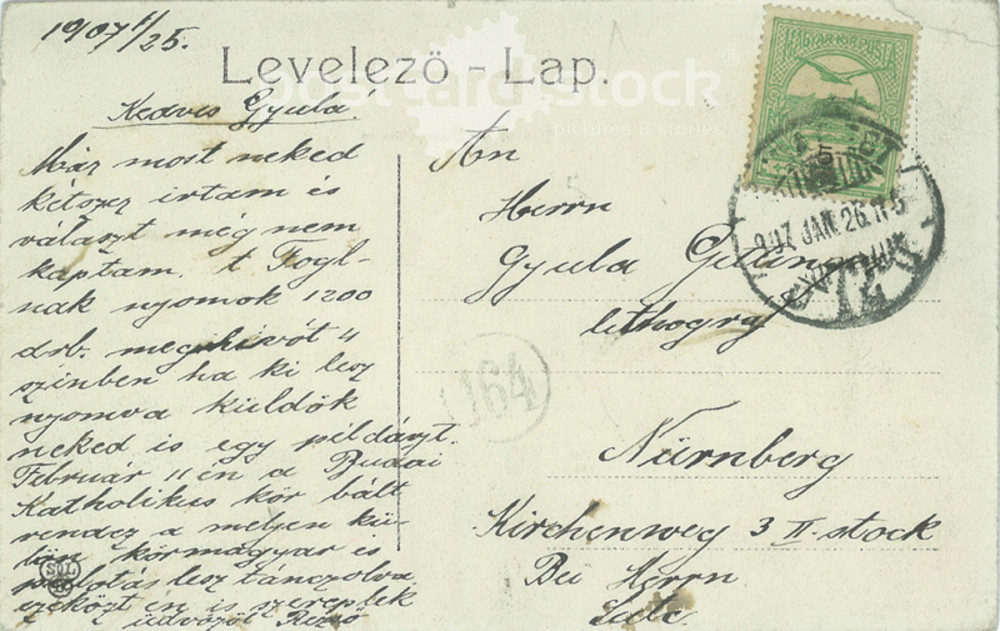 1907 1/25.
Levelező - Lap.
postcard stock
pictures & stories
MAGYAR KIR. POSTA
5
Kedves Gyula!
Már most neked
kétszer irtam és
választ még nem
kaptam. t Fogl-
nak nyomok 1200
drb. meghivót 4
szinben ha ki lesz
nyomva küldök
neked is egy példányt.
Február 11 én a Budai
Katholikus kör bált
rendez a melyen kü-
lön körmagyar és
palotás lesz tánczolva
ezeközt én is szereplek
üdvözöl Rezső
An
Herrn
Gyula
lithogra
Nürnberg
Kirchenweg 3 II. stock
Bei Herrn
907 JAN. 26
164